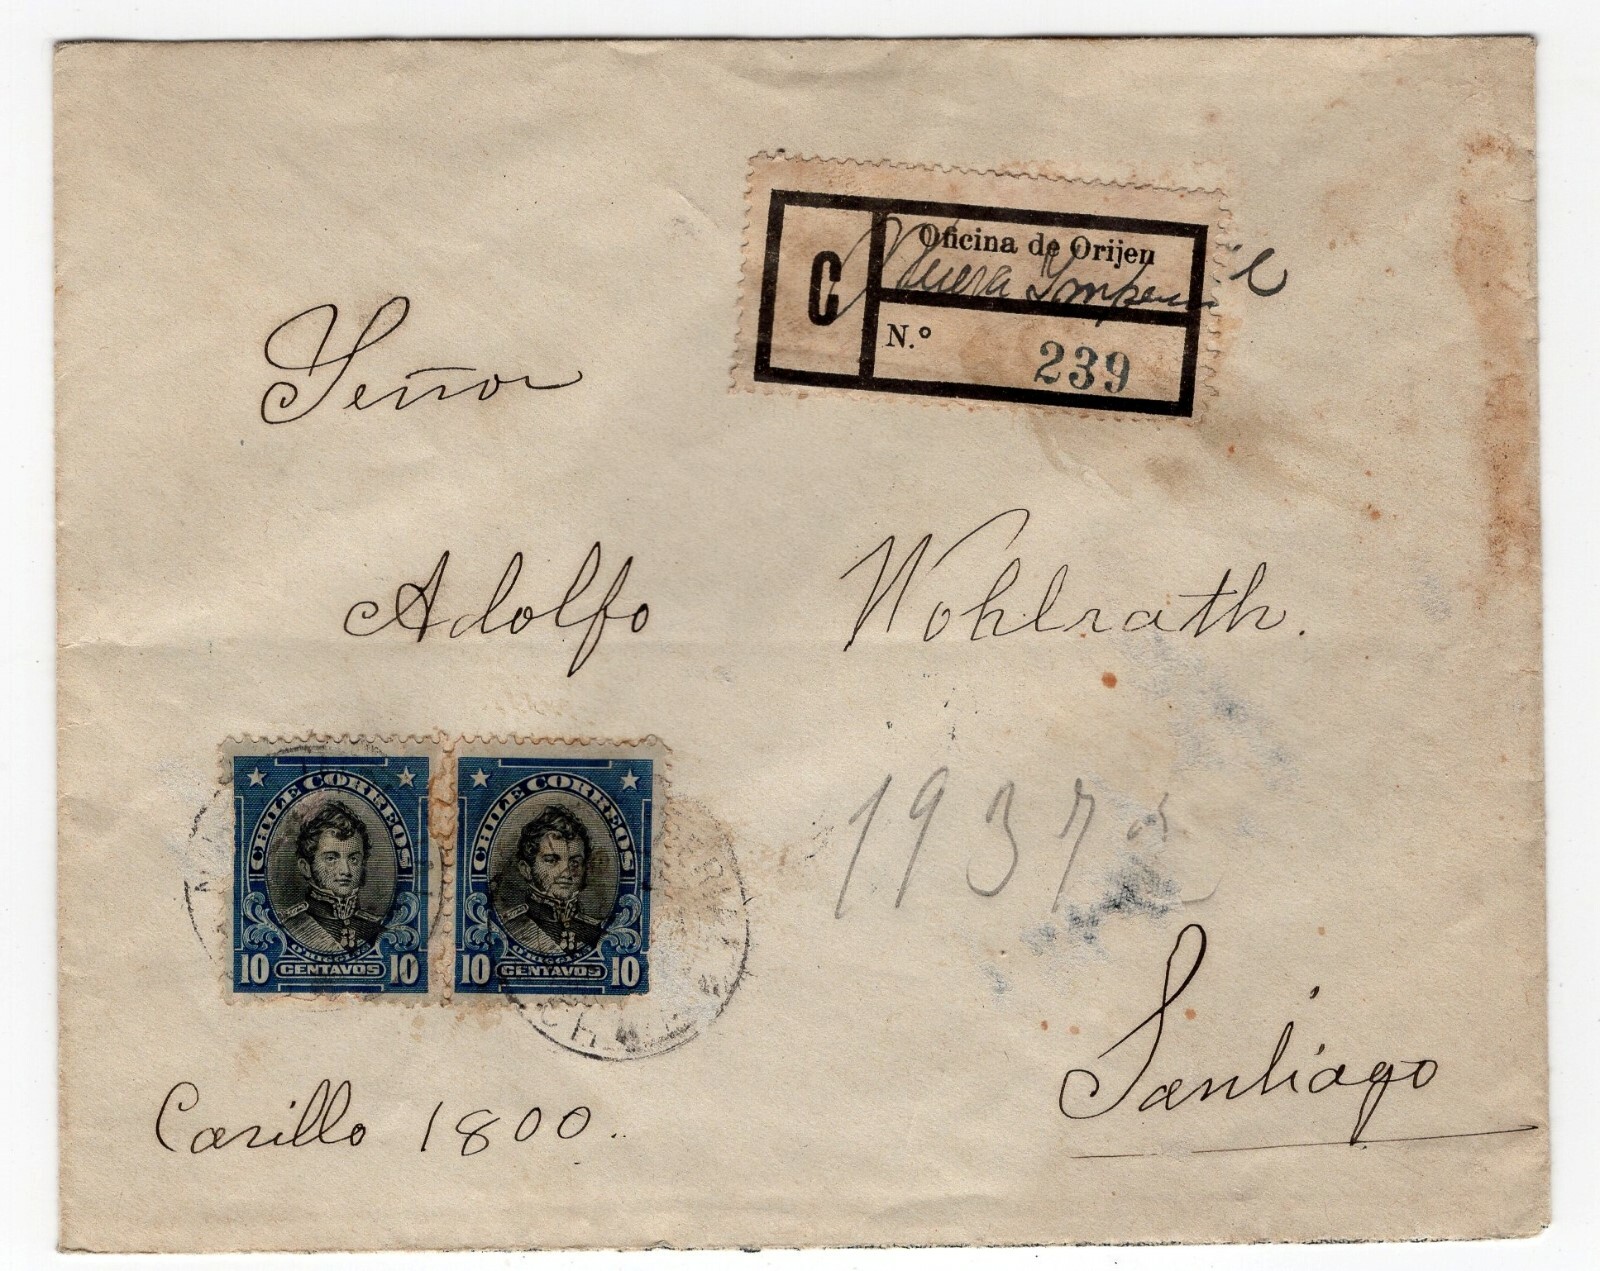 Oficina de Orijen
C
Nueva Imperial
N.º 239
Señor
Adolfo Wohlrath.
CHILE CORREOS
O'HIGGINS
10 CENTAVOS 10
CHILE CORREOS
O'HIGGINS
10 CENTAVOS 10
1937
CHILE
Casillo 1800.
Santiago